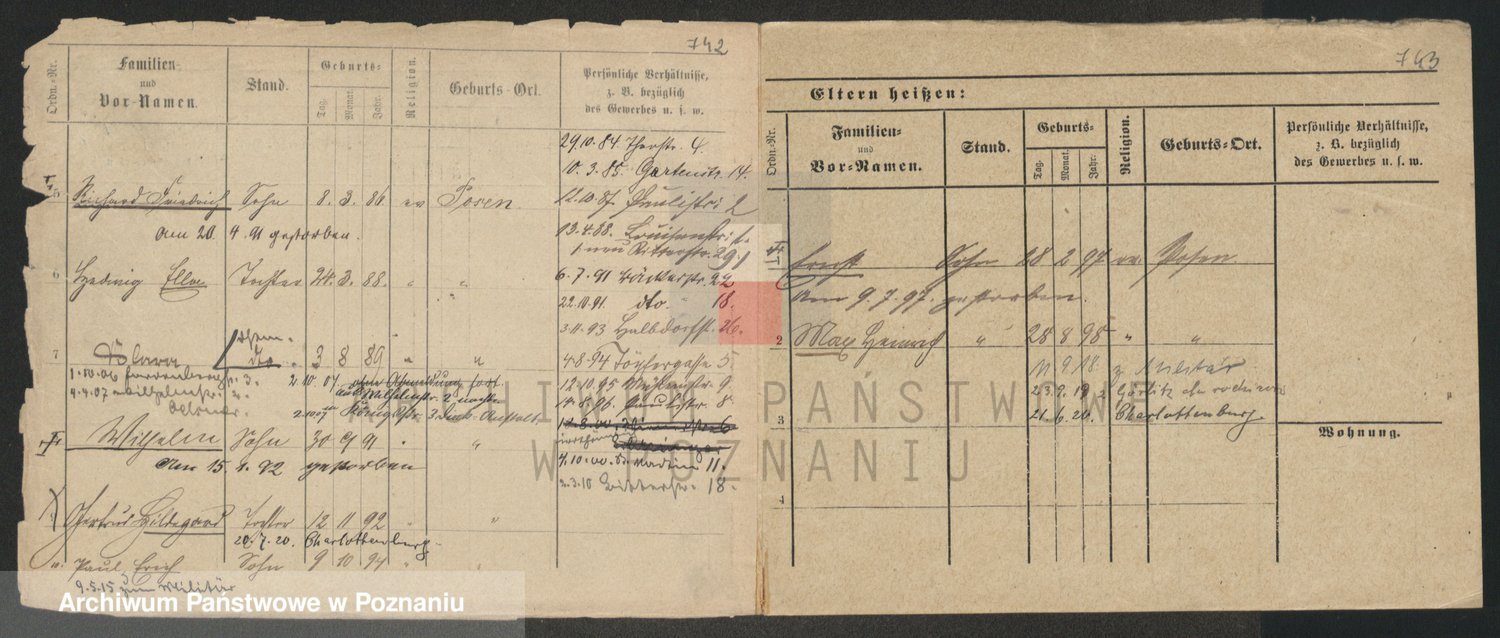 742
Familien-
und
Vor-Namen.
Stand.
Geburts-
Tag.
Monat.
Jahr.
Religion.
Geburts-Ort.
Persönliche Verhältnisse,
z. B. bezüglich
des Gewerbes u. s. w.
Ordn.-Nr.
29.10.84. 4.
10.3.85. Gartenstr. 14.
5 Richard Friedrich Sohn 8. 3. 86 ev Posen
12.10.87. Paulistr. 2
am 20. 4. 91 gestorben.
13.4.88.
Ritterstr. 29
6 Hedwig Ella Tochter 24. 3. 88. " "
6.7.91 Bäckerstr. 22
22.10.91. dto " 18.
3.11.93 Halbdorfstr. 26.
7 dto " 3 8 89 " "
4.8.94 Töpfergasse 5
1.10.06 3.
2.10.07 ohne Abmeldung fort
12.10.95 9.
4.4.07
2
14.8.96 Paulistr. 8.
2.10.07 Königstr. 3.
Wilhelm Sohn 30 91 "
am 15. 1. 92 gestorben
4.10.00. St. Martin 11.
2.3.10 Ritterstr. 18.
Gertrud Hildegard Tochter 12 11 92 " "
20.7.20. Charlottenburg.
Paul Erich Sohn 9 10 94 " "
9.5.15 zum Militär
743
Eltern heißen:
Ordn.-Nr.
Familien-
und
Vor-Namen.
Stand.
Geburts-
Tag.
Monat.
Jahr.
Religion.
Geburts-Ort.
Persönliche Verhältnisse,
z. B. bezüglich
des Gewerbes u. s. w.
1 Sohn 28 2 97 ev. Posen
am 9. 7. 97. gestorben.
2 Max Heinrich " 28 8 98 " "
11.9.18. z. Militär
23.9.19 Görlitz
21.6.20. Charlottenburg.
3
Wohnung.
4
ARCHIWUM PAŃSTWOWE
W POZNANIU
Archiwum Państwowe w Poznaniu